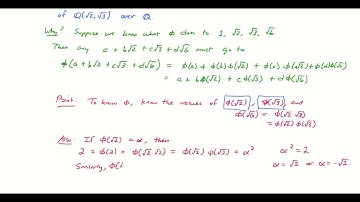 of Q(√2, √3) over Q.
Why? Suppose we know what φ does to 1, √2, √3, √6.
Then any a + b√2 + c√3 + d√6 must go to
φ(a + b√2 + c√3 + d√6) = φ(a) + φ(b) φ(√2) + φ(c) φ(√3) + φ(d) φ(√6)
= a + bφ(√2) + cφ(√3) + dφ(√6)
Point: To know φ, know the values of φ(√2), φ(√3), and
φ(√6) = φ(√2 √3)
= φ(√2) φ(√3)
Also: If φ(√2) = α, then
2 = φ(2) = φ(√2 √2) = φ(√2) φ(√2) = α² α² = 2
Similarly, φ( α = √2 or α = -√2.